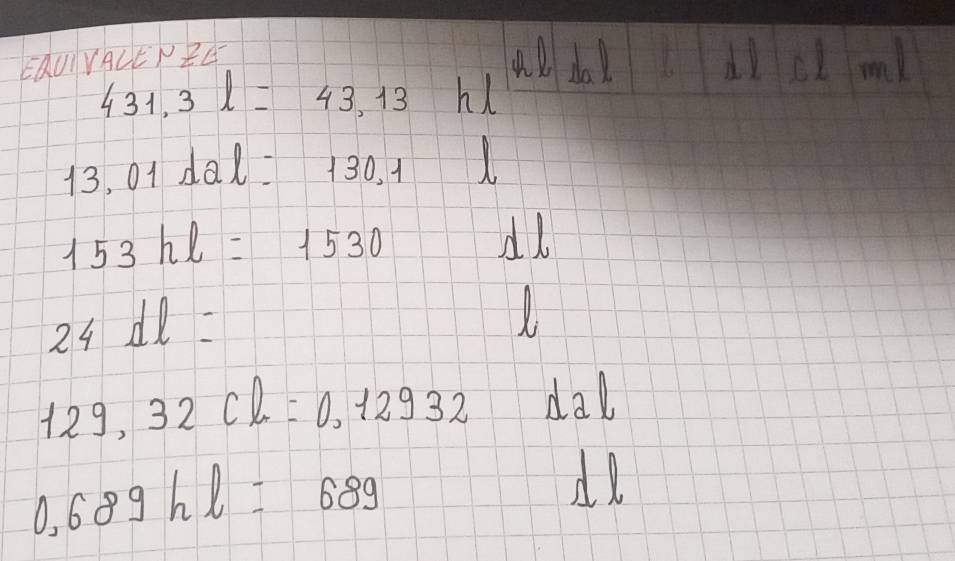 EQUIVALENZE
hl dal l dl cl ml
431,3 l = 43,13 hl
13,01 dal = 130,1 l
153 hl = 1530 dl
24 dl = l
129,32 cl = 0,12932 dal
0,689 hl = 689 dl